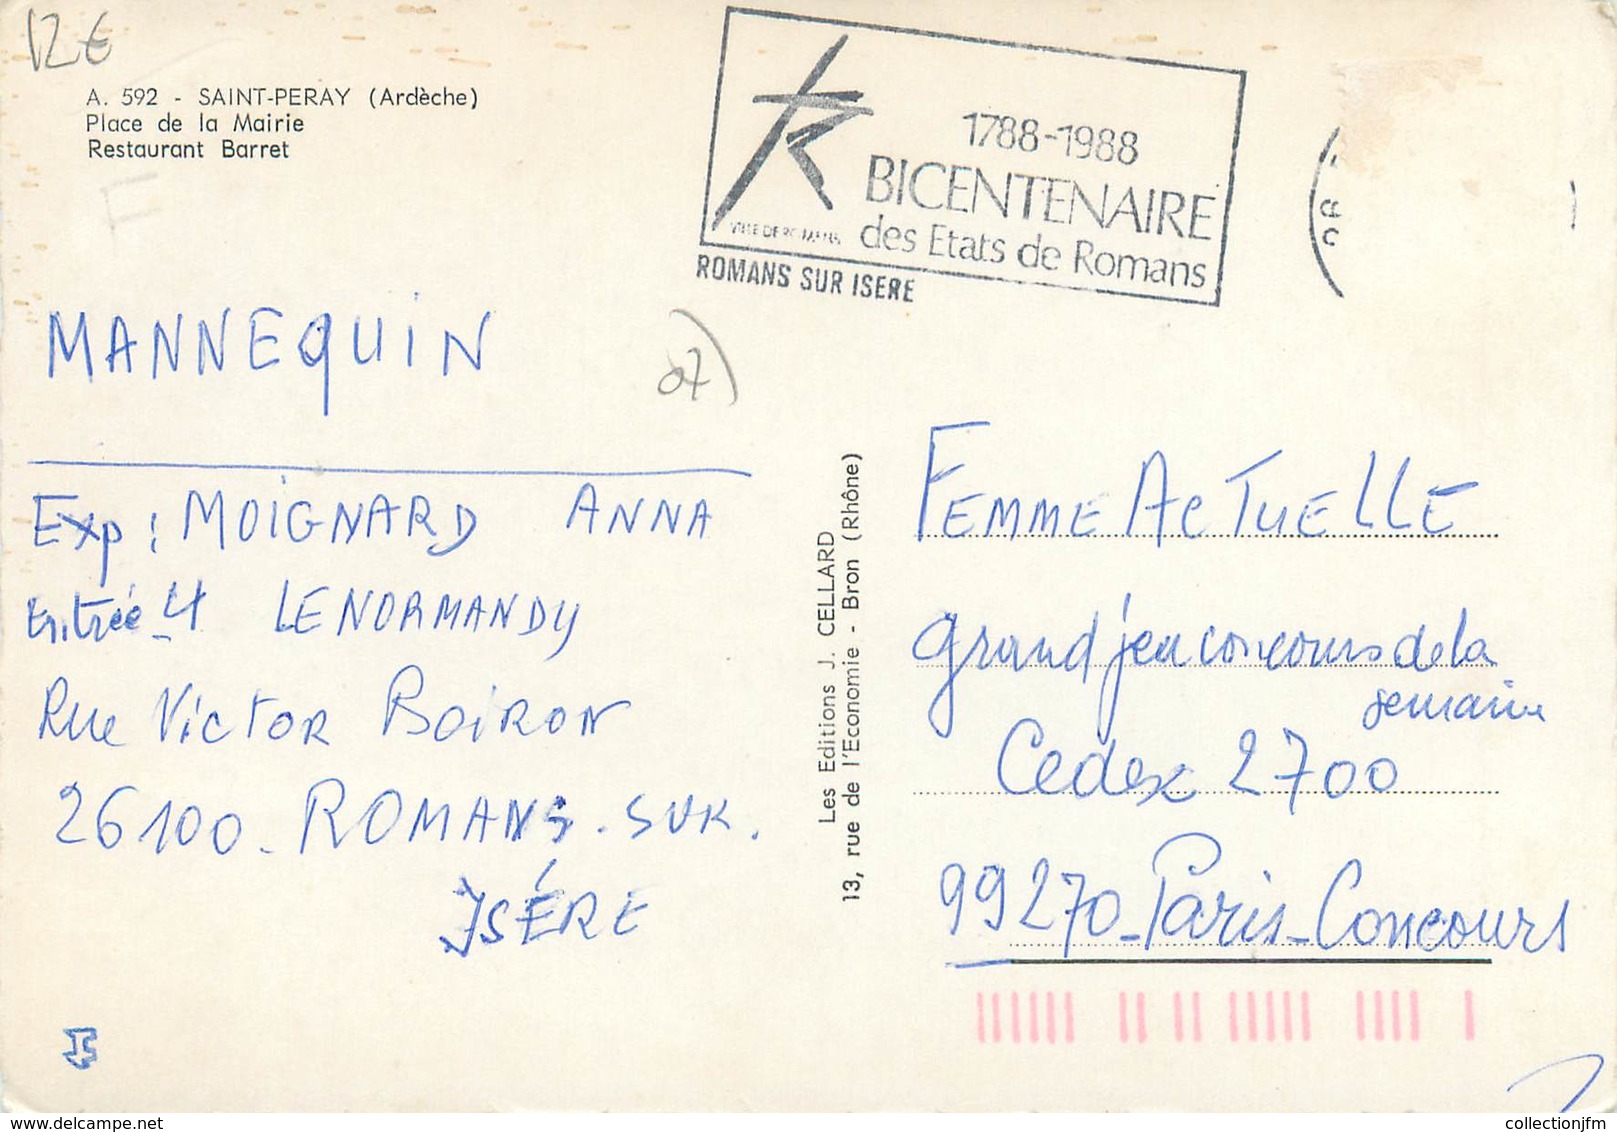 12€
A. 592 - SAINT-PERAY (Ardèche)
Place de la Mairie
Restaurant Barret
1788-1988
BICENTENAIRE
des Etats de Romans
VILLE DE ROMANS
ROMANS SUR ISERE
MANNEQUIN
07)
Exp: MOIGNARD ANNA
Entrée 4 LENORMANDY
Rue Victor BOIRON
26100 - ROMANS. SUR.
ISÉRE
Les Editions J. CELLARD
13, rue de l'Economie - Bron (Rhône)
FEMME ACTUELLE
grand jeu concours de la
semaine
Cedex 2700
99270-Paris-Concours
www.delcampe.net
collectionjfm